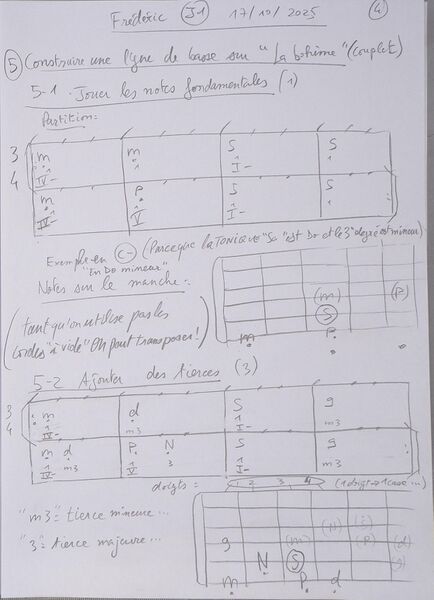 Frédéric J-1 17/10/2025 4
5 Construire une ligne de basse sur "La bohème" (couplet)
5-1. Jouer les notes fondamentales (1)
Partition:
3 m m S S
4 1 1 1 1
IV- I-
m P S S
1 1 1 1
IV- V I-
Exemple en C- (Parce que la TONIQUE "S" est Do et le 3° degré est mineur)
"en Do mineur"
Notes sur le manche:
(m) (P)
S
m P
(tant qu'on utilise pas les
cordes "à vide" on peut transposer!)
5-2 Ajouter des tierces (3)
3 m d S g
4 1 m3 1 m3
IV- I-
m d P N S g
1 m3 1 3 1 m3
IV- V I-
doigts: 1 2 3 4 (1 doigt → 1 case...)
"m3" = tierce mineure...
"3" = tierce majeure...
(m) (N) (S)
(P) (d)
g N S (g)
m P d